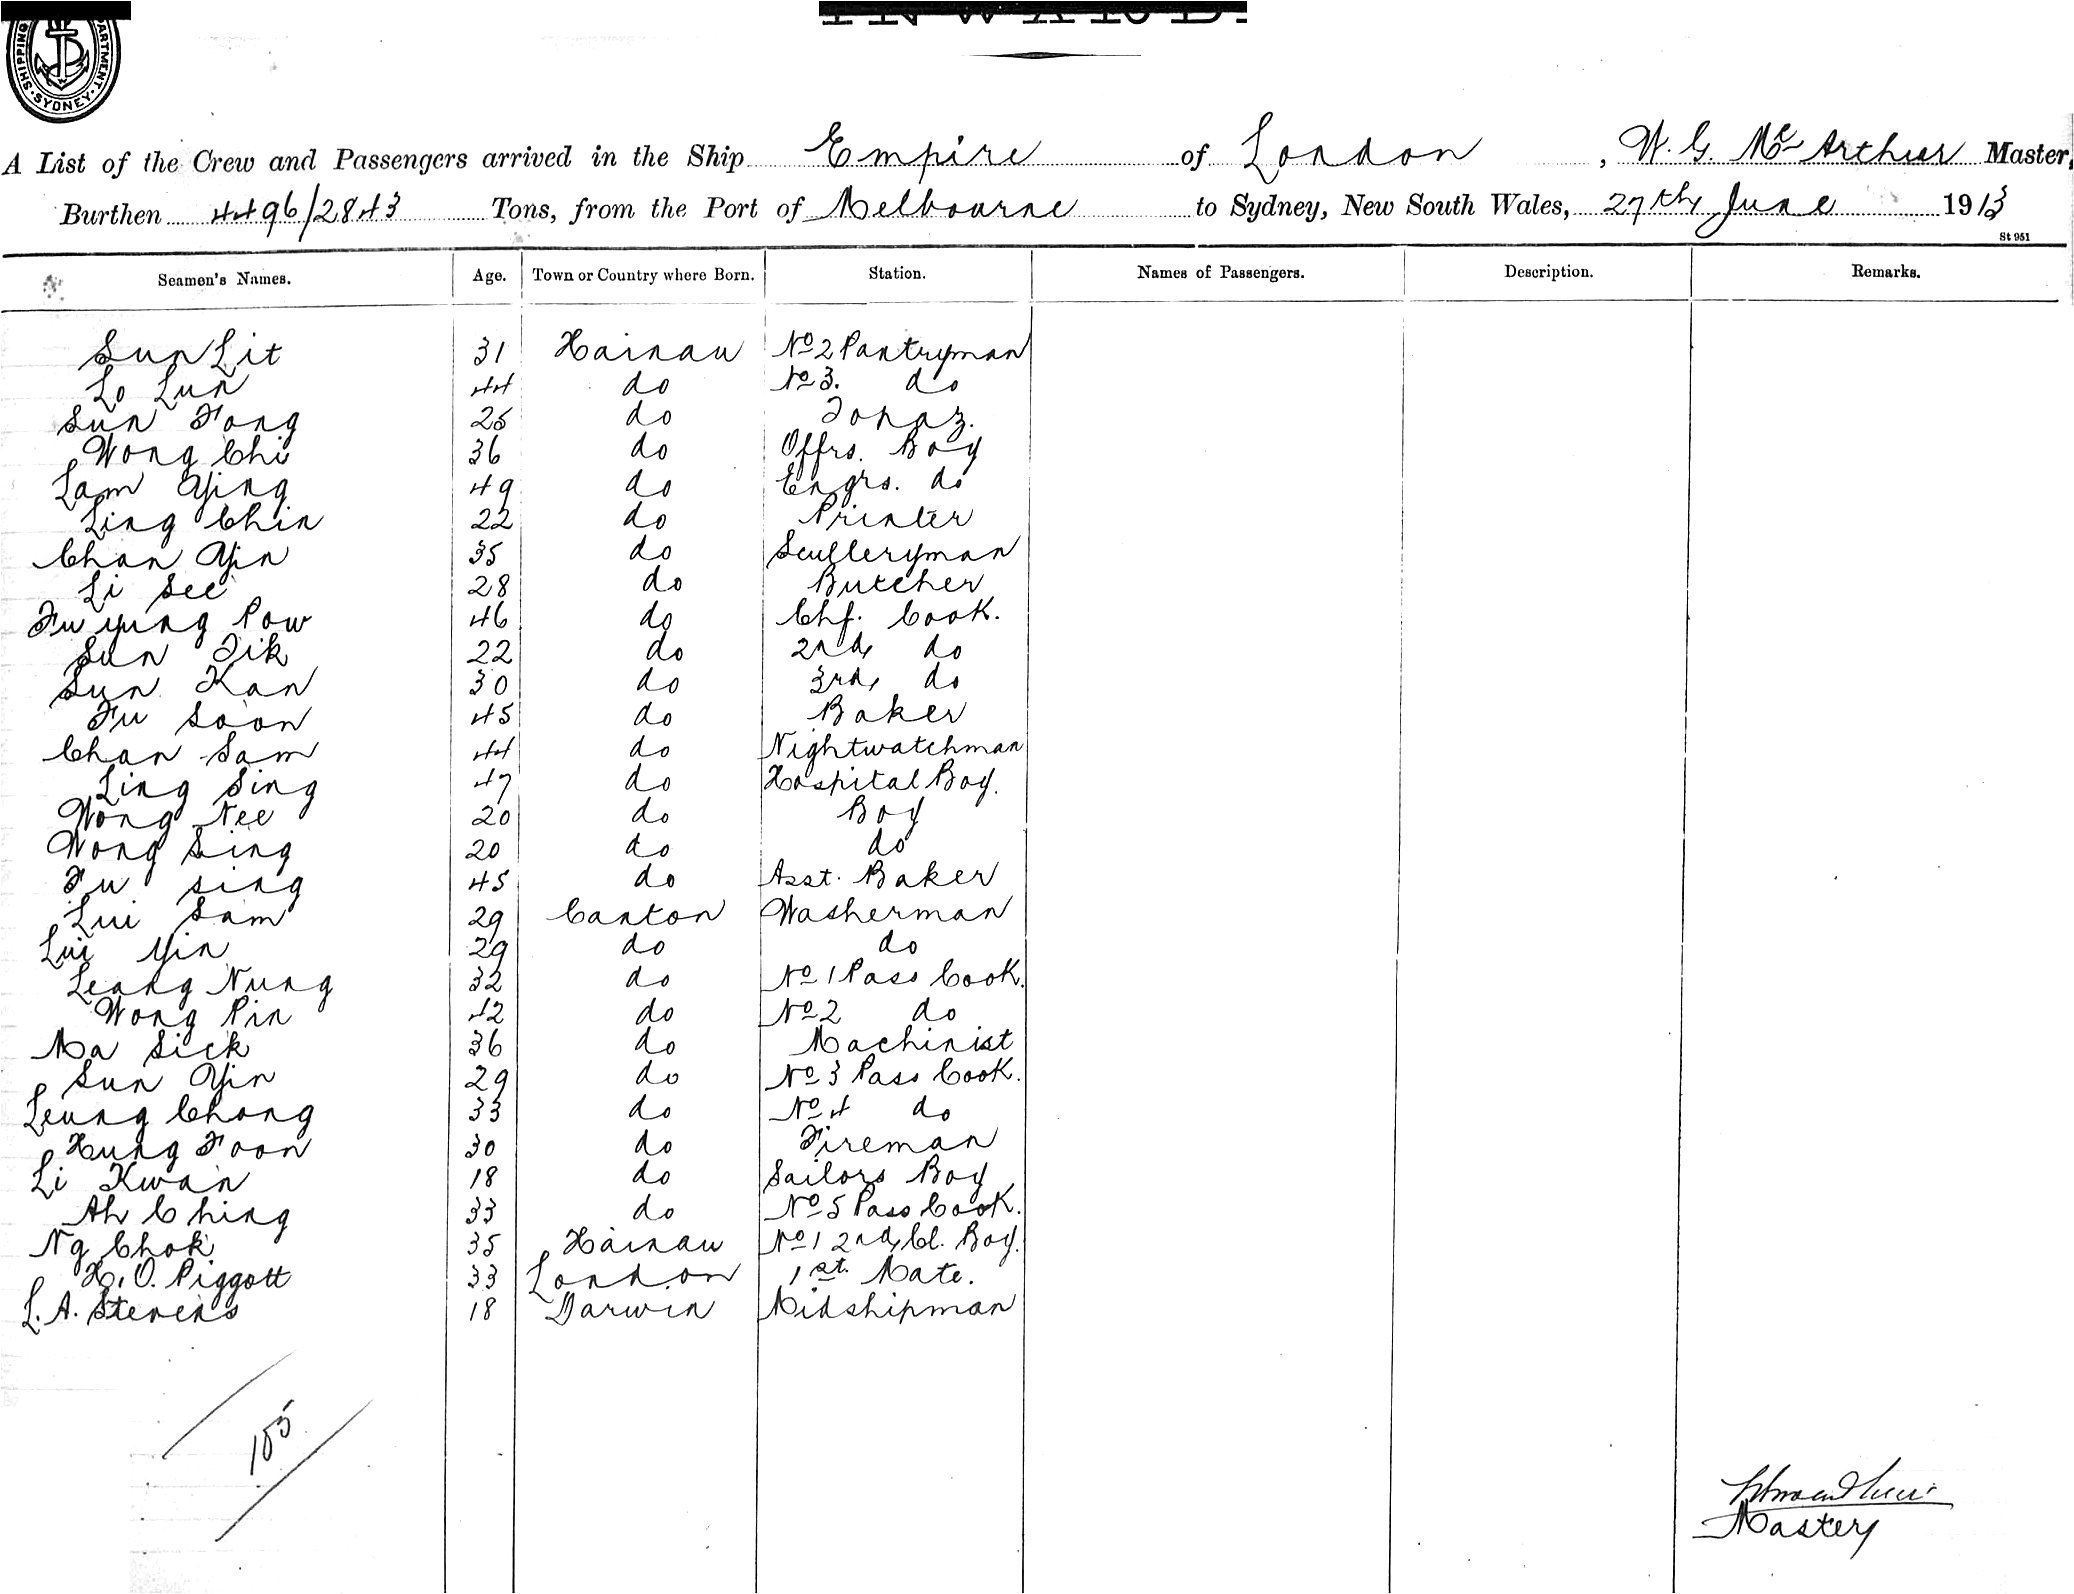 SHIPPING DEPARTMENT. SYDNEY
INWARD.
A List of the Crew and Passengers arrived in the Ship Empire of London, W. G. McArthur Master,
Burthen 4496/2843 Tons, from the Port of Melbourne to Sydney, New South Wales, 27th June 1913
St 951
Seamen's Names. Age. Town or Country where Born. Station. Names of Passengers. Description. Remarks.
Sun Lit 31 Hainau No 2 Pantryman
Lo Lun 44 do No 3. do
Sun Fong 25 do Topaz.
Wong Chi 36 do Offrs. Boy
Lam Ying 49 do Engrs. do
Ling Chin 22 do Printer
Chan Yin 35 do Sculleryman
Li See 28 do Butcher
Fu yung Pow 46 do Chf. Cook.
Sun Tik 22 do 2nd, do
Sun Kan 30 do 3rd, do
Fu Soon 45 do Baker
Chan Sam 44 do Nightwatchman
Ling Sing 47 do Hospital Boy.
Wong Nee 20 do Boy
Wong Sing 20 do do
Fu Sing 45 do Asst. Baker
Lui Sam 29 Canton Washerman
Lui Yin 29 do do
Leang Nung 32 do No 1 Pass Cook.
Wong Pin 42 do No 2 do
Ma Sick 36 do Machinist
Sun Yin 29 do No 3 Pass Cook.
Leung Chong 33 do No 4 do
Hung Foon 30 do Fireman
Li Kwan 18 do Sailors Boy
Ah Ching 33 do No 5 Pass Cook.
Ng Chok 35 Hainau No 1 2nd, Cl. Boy.
H. O. Piggott 33 London 1st. Mate.
L. A. Stevens 18 Darwin Midshipman
105
Master